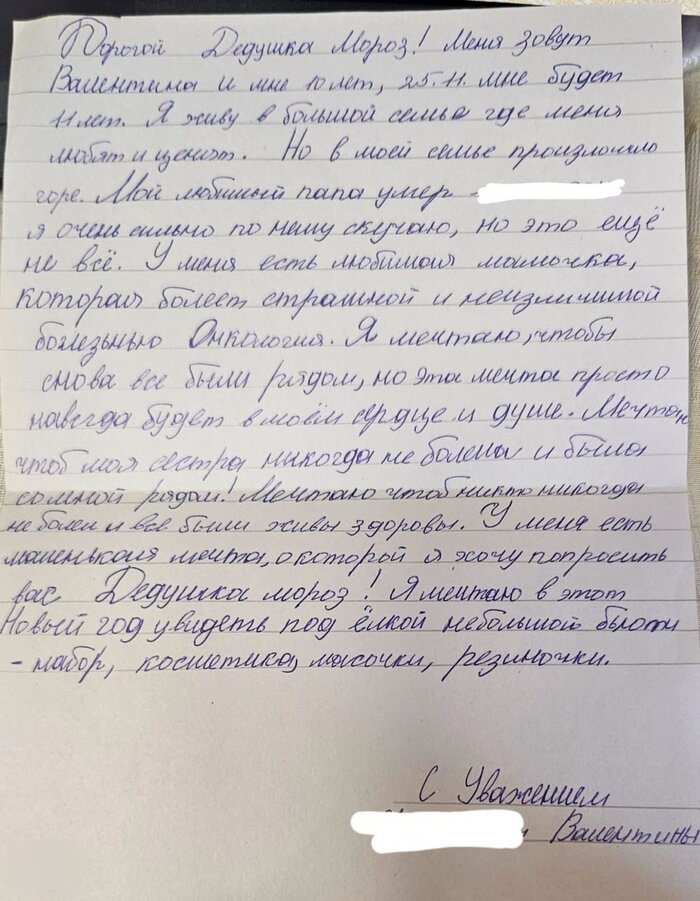 Дорогой Дедушка Мороз! Меня зовут
Валентина и мне 10 лет, 25.11. мне будет
11 лет. Я живу в большой семье где меня
любят и ценят. Но в моей семье произложило
горе. Мой любимый папа умер -
я очень сильно по нему скучаю, но это ещё
не всё. У меня есть любимая мамочка,
которая болеет страшной и неизличимой
болезьнью Онкология. Я мечтаю, чтобы
снова все были рядом, но эта мечта просто
навсегда будет в моём сердце и душе. Мечтаю
чтоб моя сестра никогда не болела и была
со мной рядом! Мечтаю чтоб никто никогда
не болел и все были живы здоровы. У меня есть
маленькая мечта, о которой я хочу попросить
вас Дедушка мороз! Я мечтаю в этот
Новый год увидеть под ёлкой небольшой бьюти
- набор, косметика, масочки, резиночки.
С Уважением
Валентины